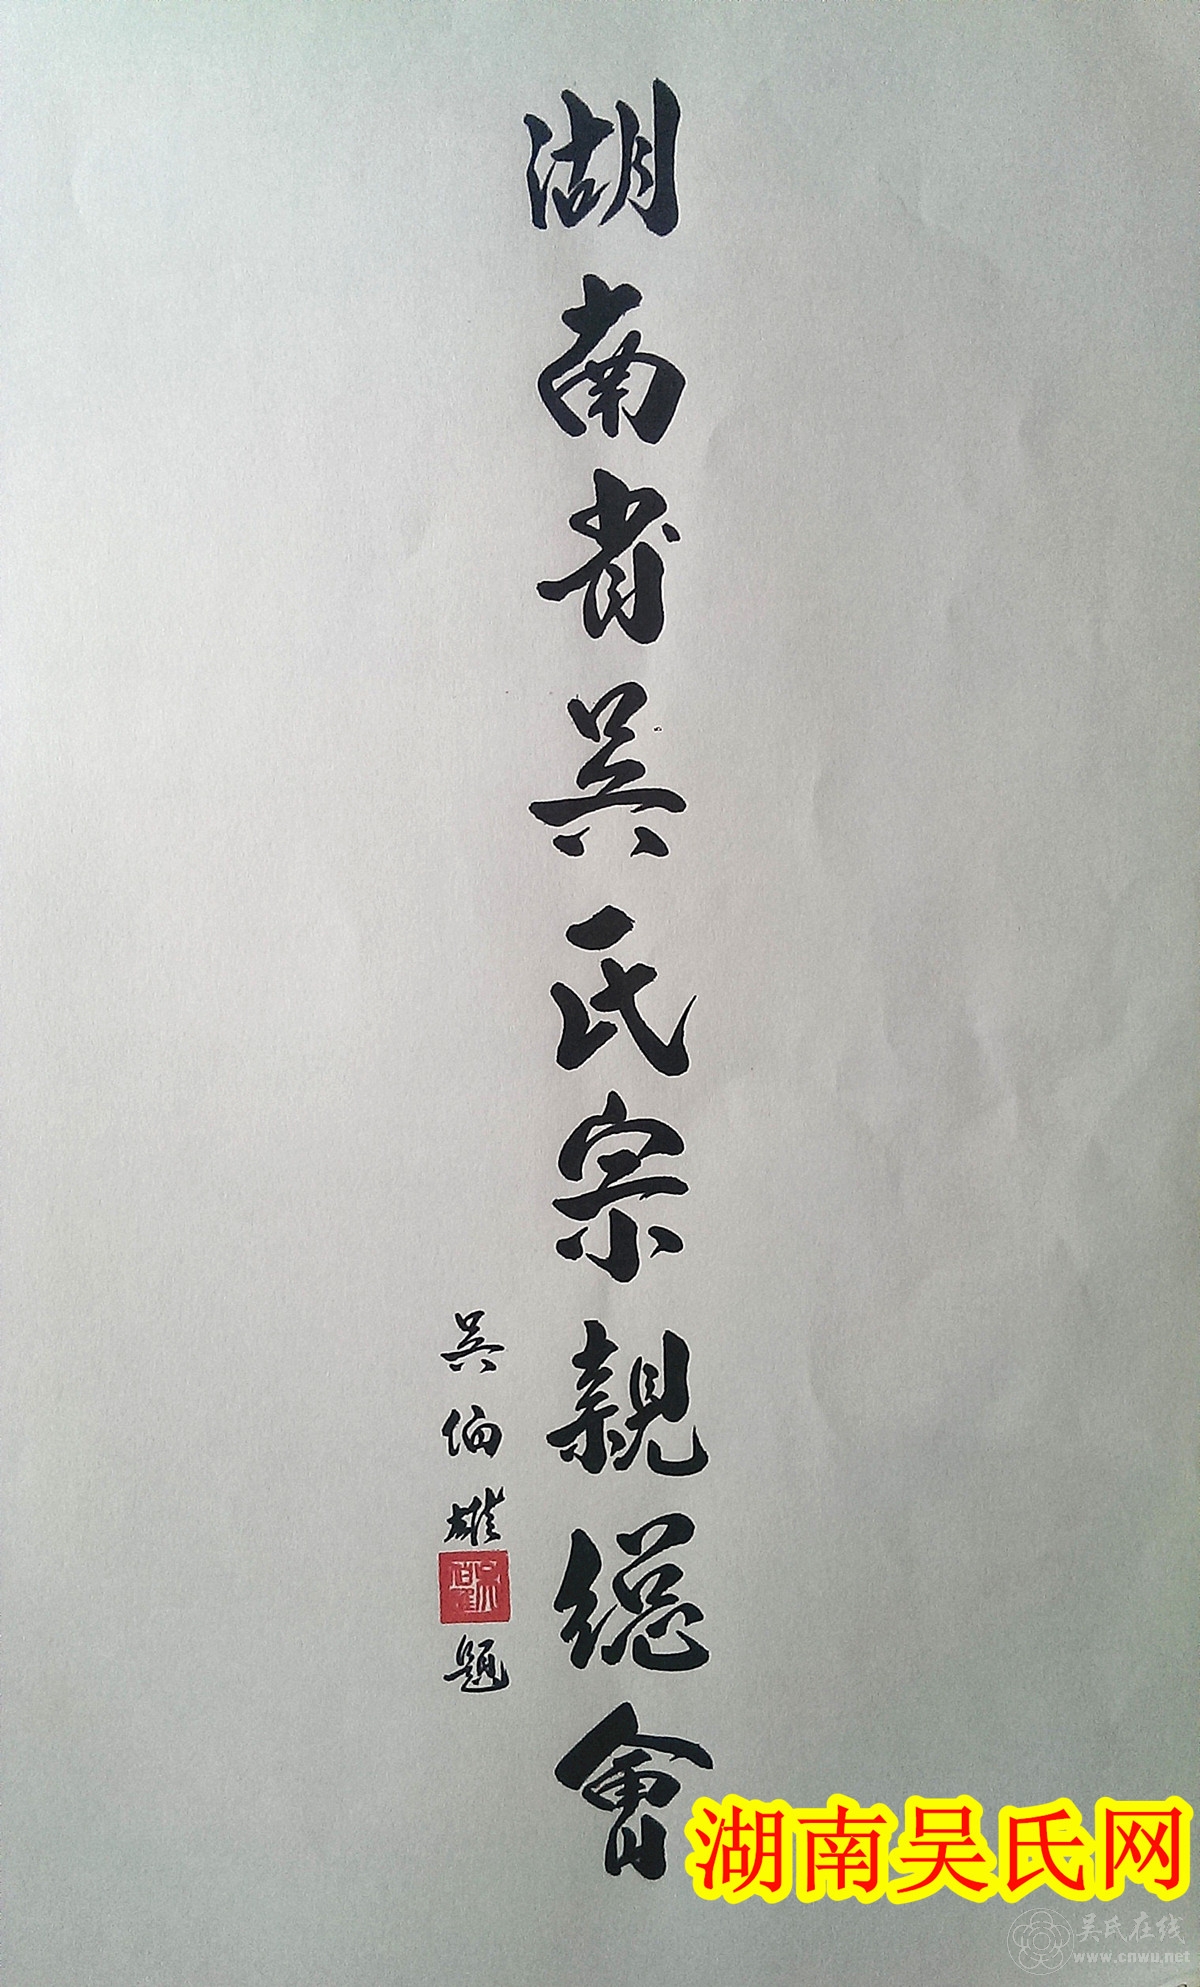 湖南省吳氏宗親總會
吳伯雄題
湖南吴氏网
吴氏在线
www.cnwu.net